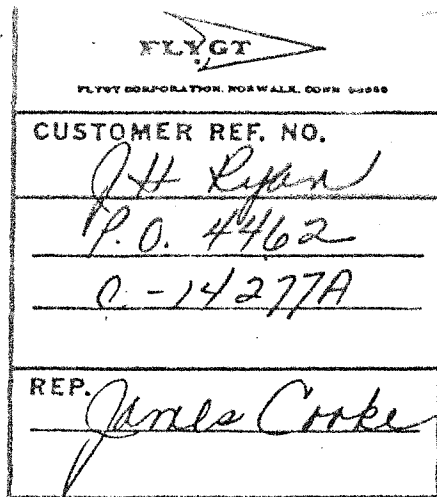 FLYGT
FLYGT CORPORATION, NORWALK, CONN
CUSTOMER REF. NO.
JH Ryan
P.O. 4462
C-14277A
REP. James Cooke